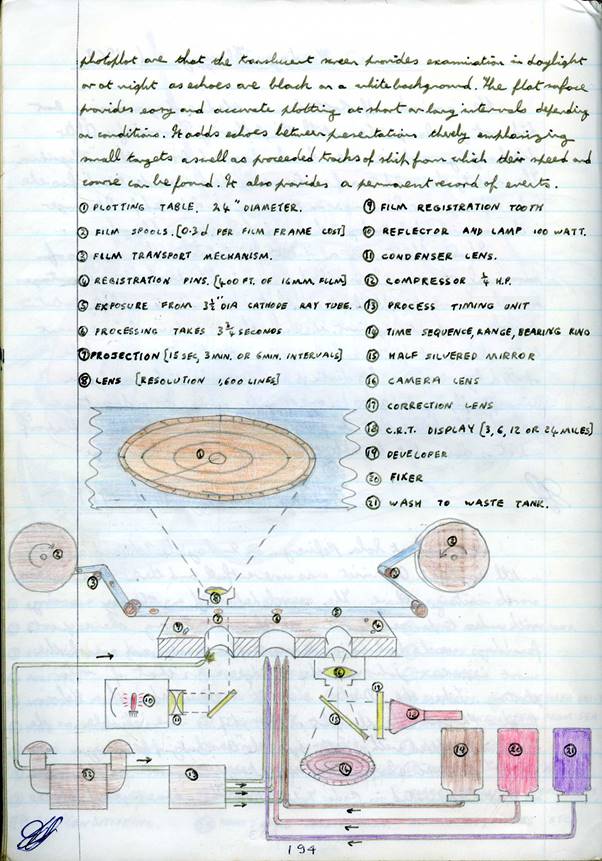 photoplot are that the translucent screen provides examination in daylight
or at night as echoes are black on a white background. The flat surface
provides easy and accurate plotting at short or long intervals depending
on conditions. It adds echoes between presentations thereby emphasizing
small targets as well as proceeded tracks of ship from which their speed and
course can be found. It also provides a permanent record of events.
① PLOTTING TABLE. 24" DIAMETER.
② FILM SPOOLS. [0.3d PER FILM FRAME COST]
③ FILM TRANSPORT MECHANISM.
④ REGISTRATION PINS. [400 FT. OF 16MM FILM]
⑤ EXPOSURE FROM 3½" DIA CATHODE RAY TUBE.
⑥ PROCESSING TAKES 3¾ SECONDS
⑦ PROSECTION [15 SEC, 3 MIN. OR 6 MIN. INTERVALS]
⑧ LENS [RESOLUTION 1,600 LINES]
⑨ FILM REGISTRATION TOOTH
⑩ REFLECTOR AND LAMP 100 WATT.
⑪ CONDENSER LENS.
⑫ COMPRESSOR ¼ H.P.
⑬ PROCESS TIMING UNIT
⑭ TIME SEQUENCE, RANGE, BEARING RING
⑮ HALF SILVERED MIRROR
⑯ CAMERA LENS
⑰ CORRECTION LENS
⑱ C.R.T. DISPLAY [3, 6, 12 OR 24 MILES]
⑲ DEVELOPER
⑳ FIXER
㉑ WASH TO WASTE TANK.
194